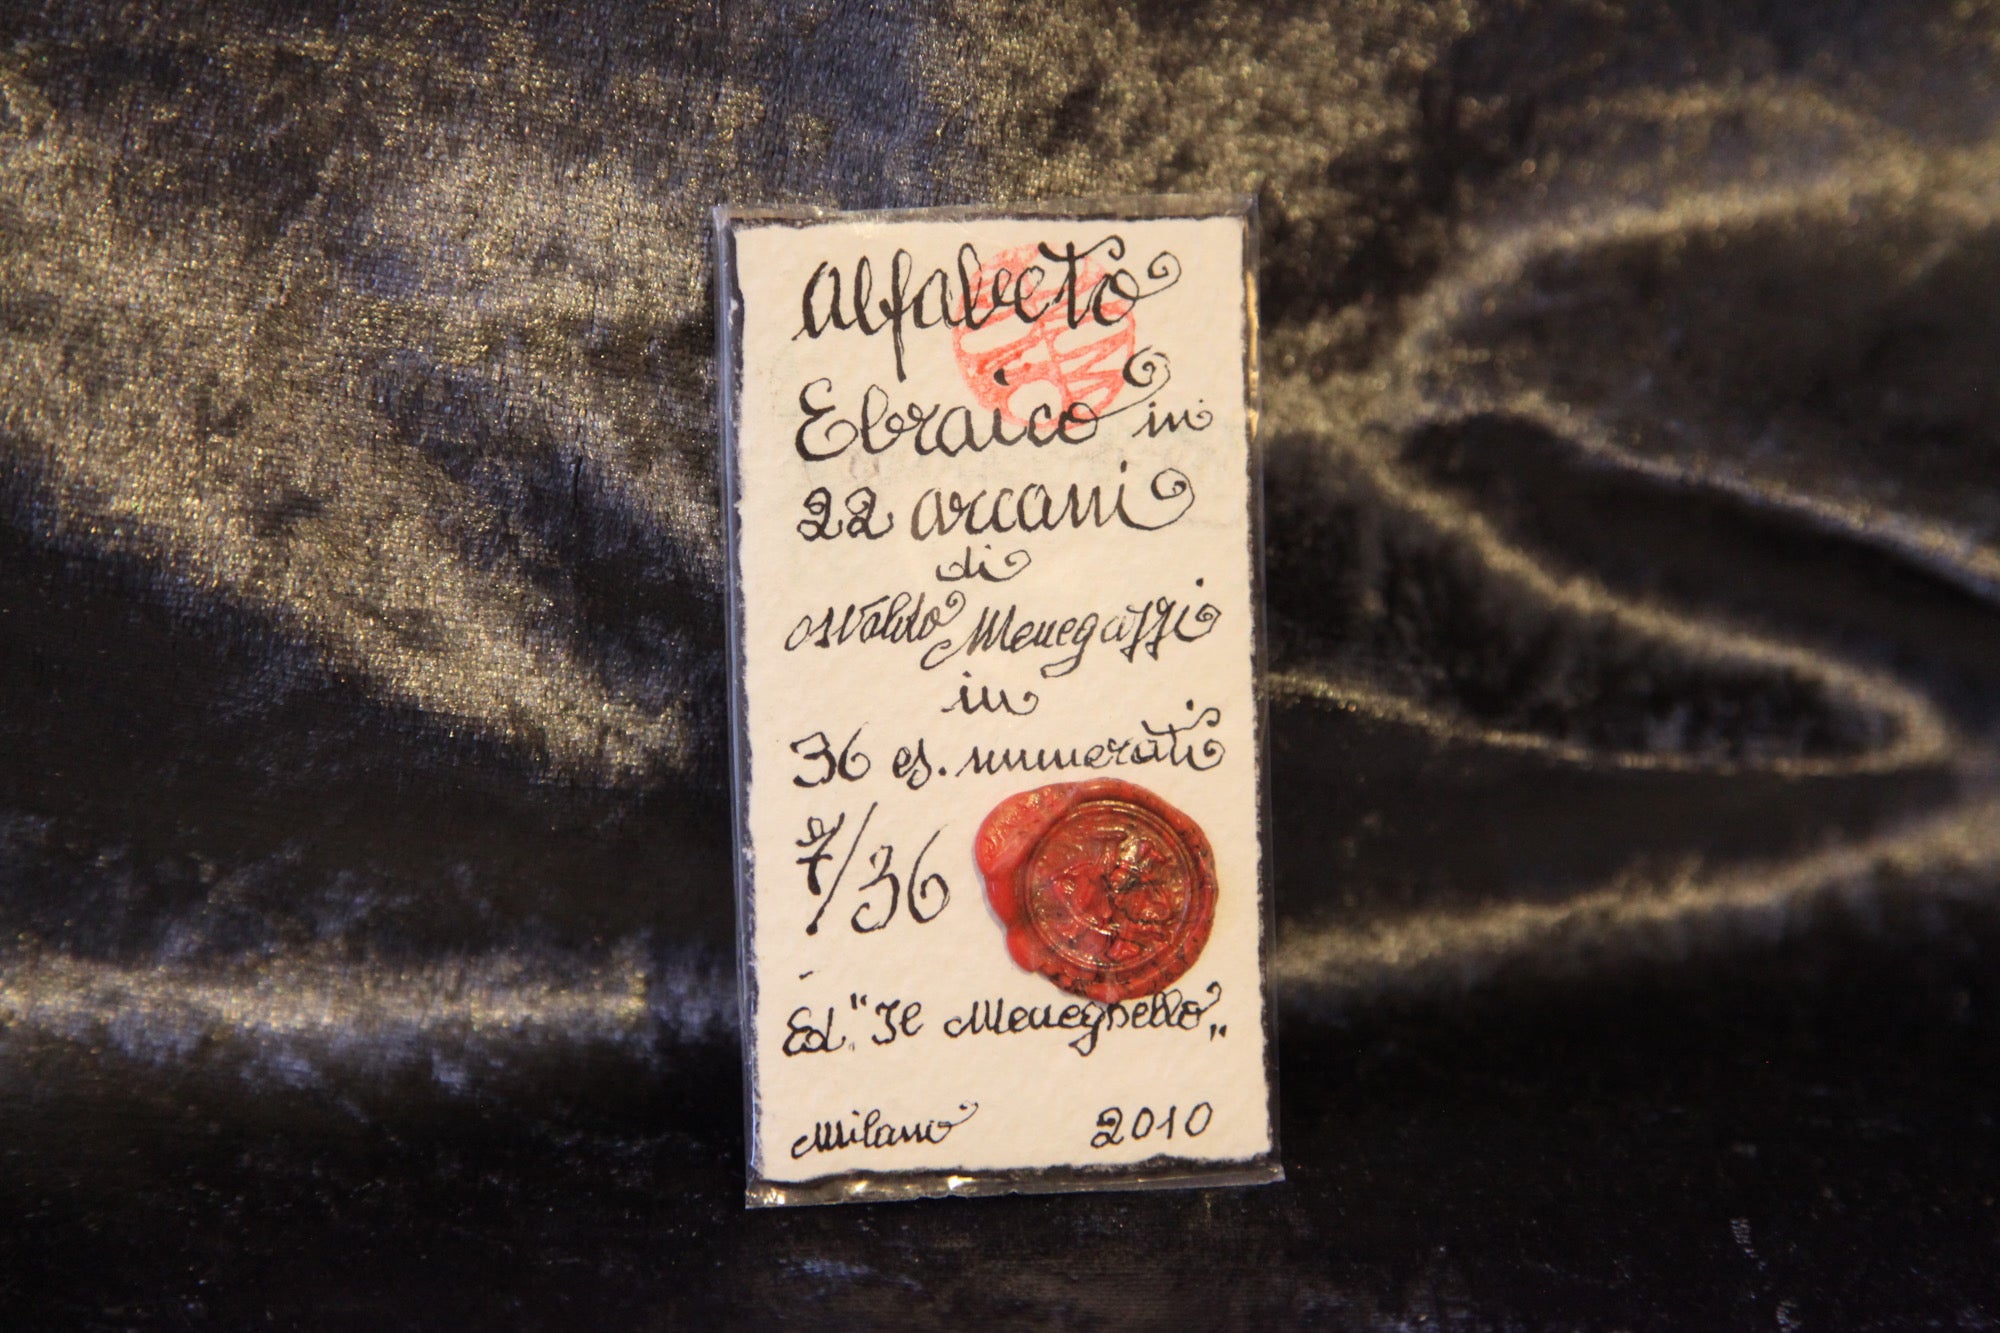 Alfabeto
Ebraico in
22 arcani
di
Osvaldo Menegazzi
in
36 es. numerati
7/36
Ed. "Il Meneghello"
Milano 2010